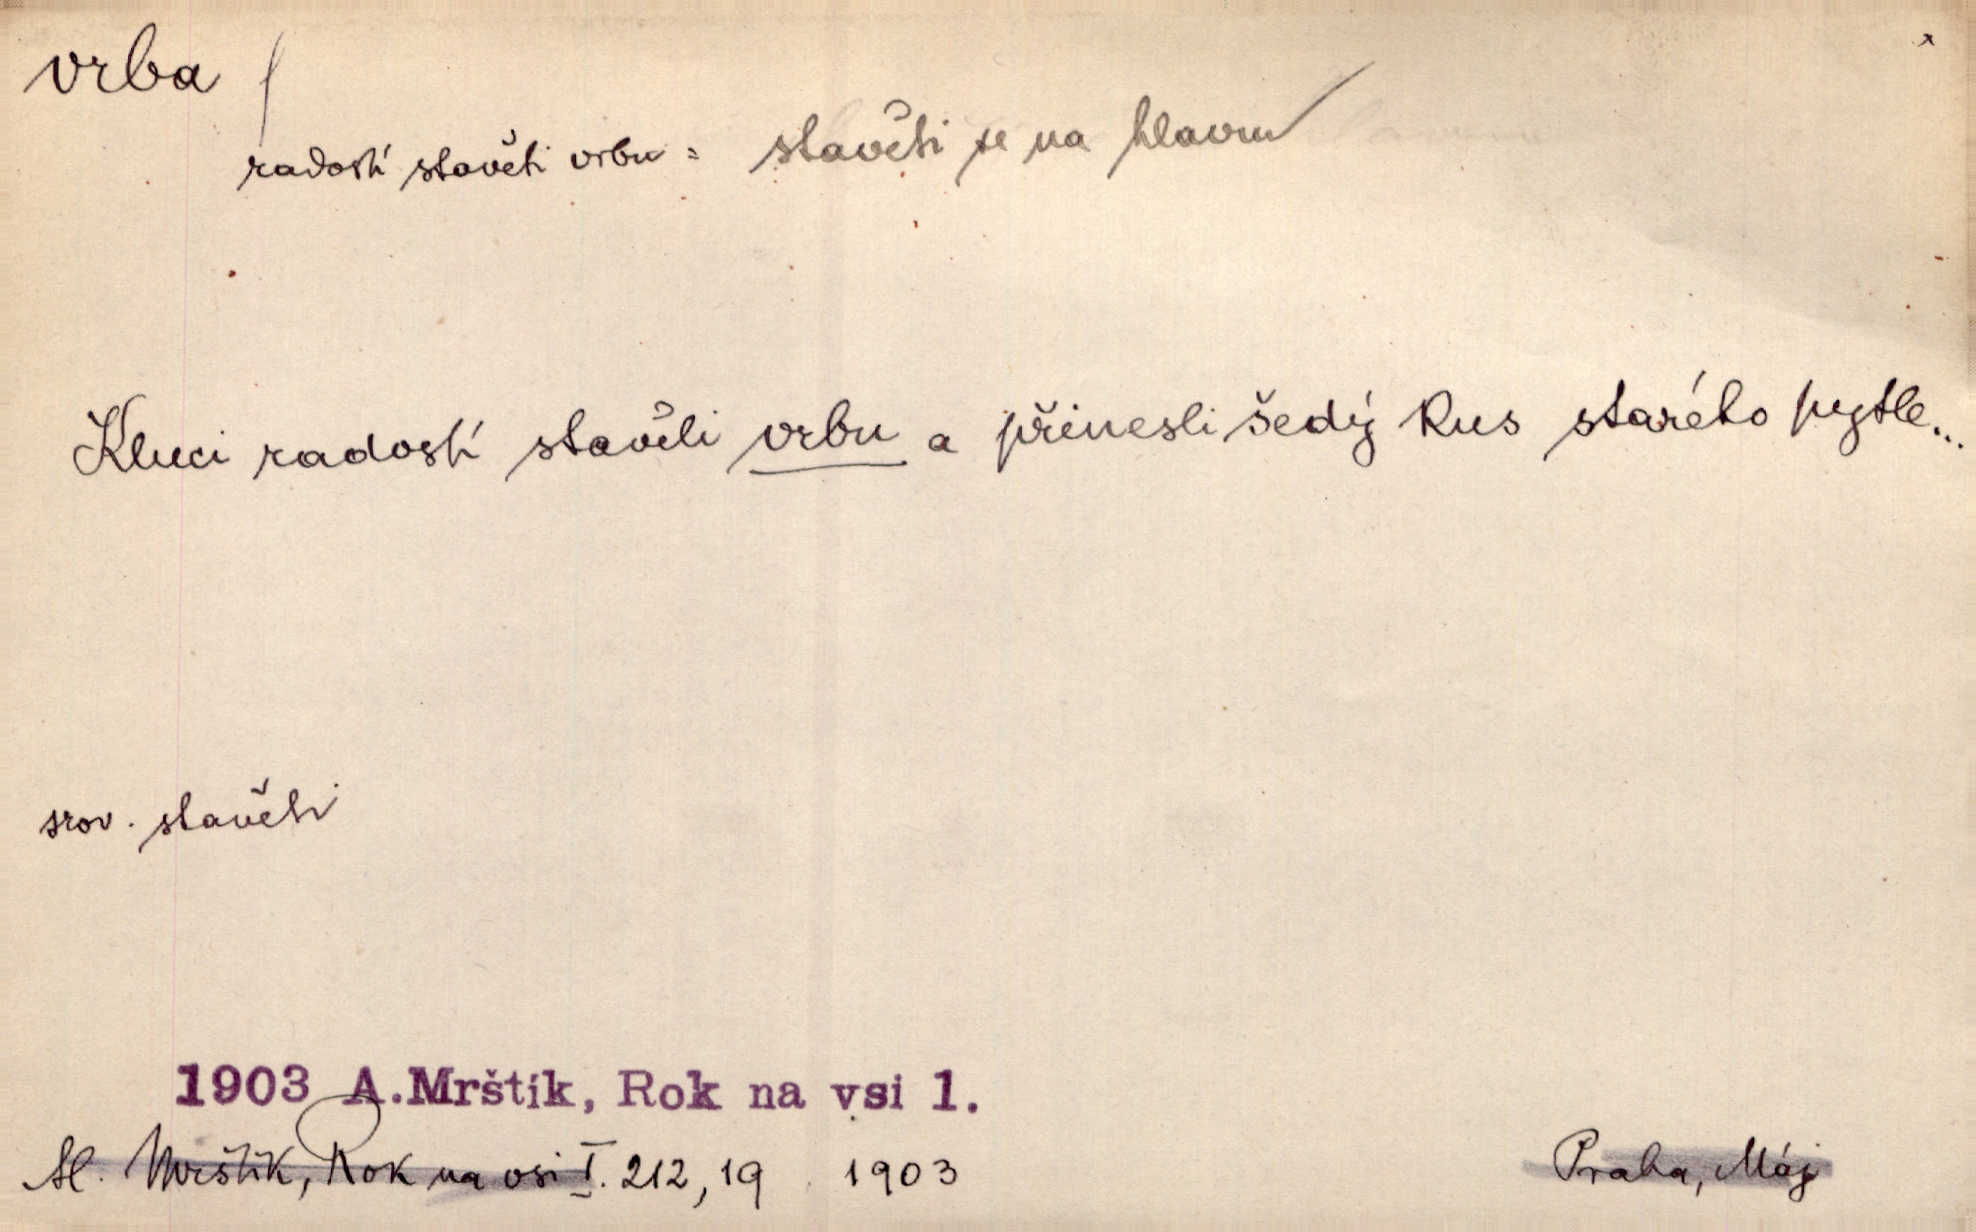 vrba
radostí stavěti vrbu = stavěti se na hlavu
Kluci radostí stavěli vrbu a přinesli šedý kus starého pytle...
srov. stavěti
1903 A.Mrštík, Rok na vsi 1.
Al. Mrštík, Rok na vsi I. 212, 19 1903
Praha, Máj